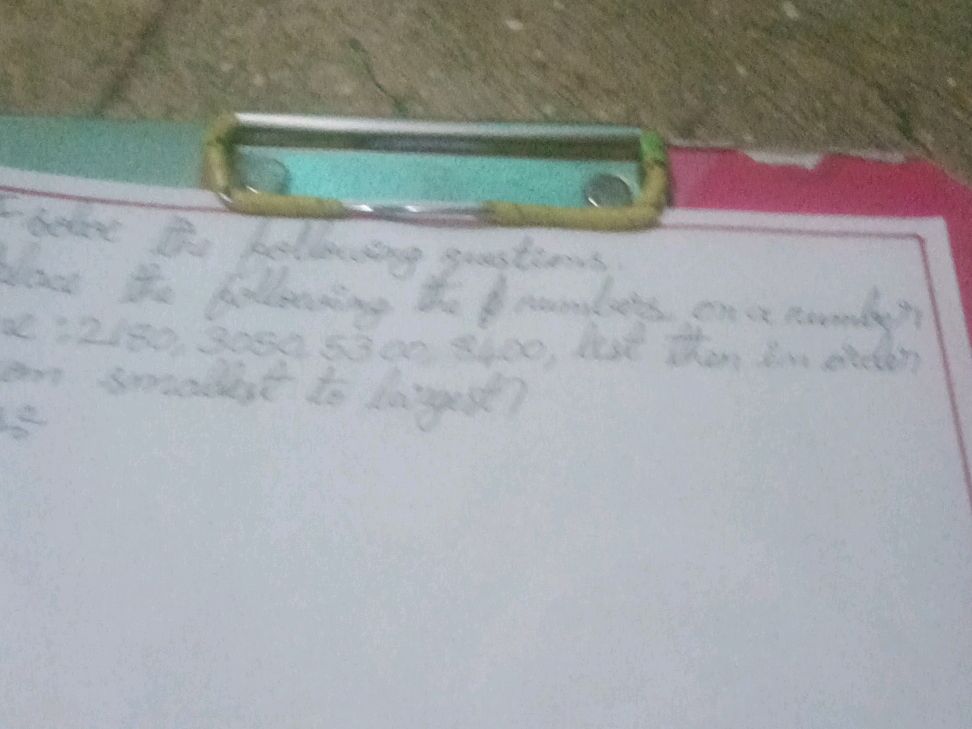 the following questions.
the following the numbers on a number
: 2180, 3050, 5300, 8400, list then in order
smallest to largest?